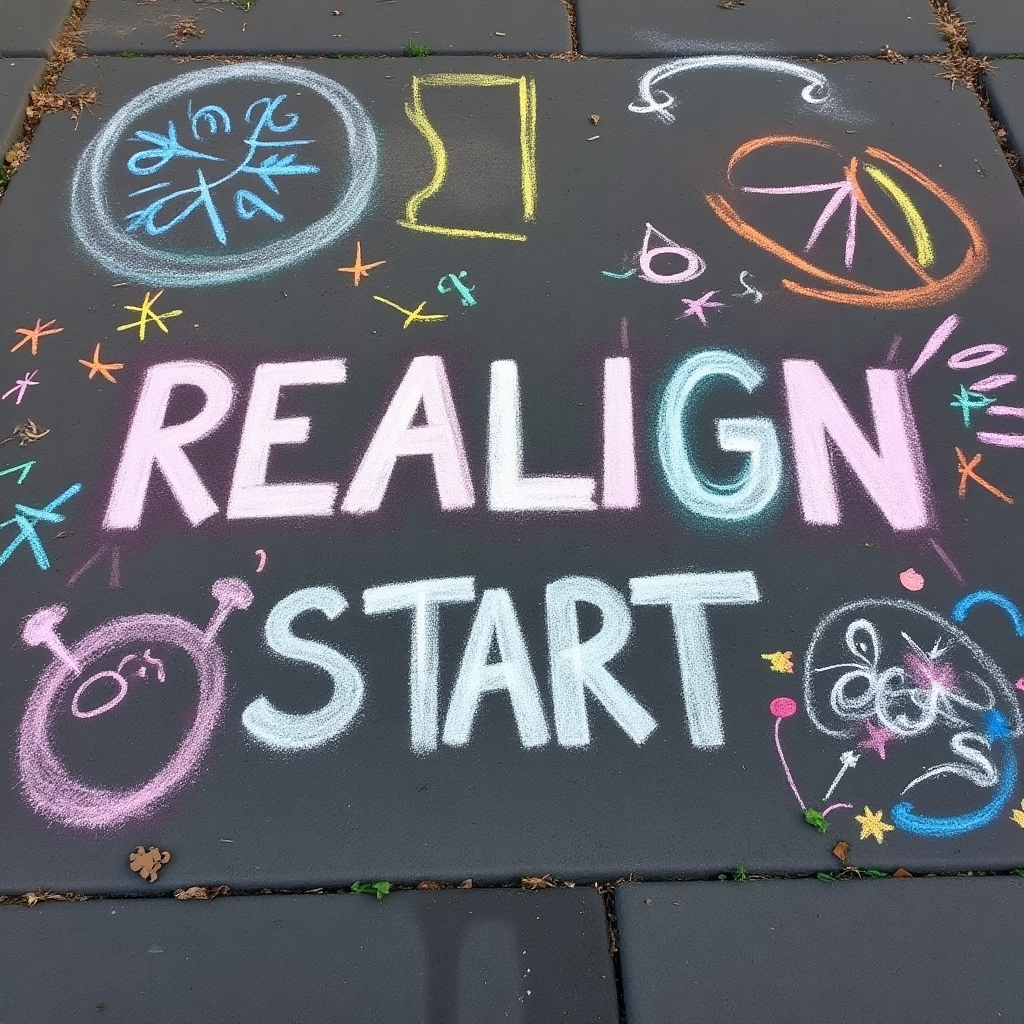 REALIGN
START